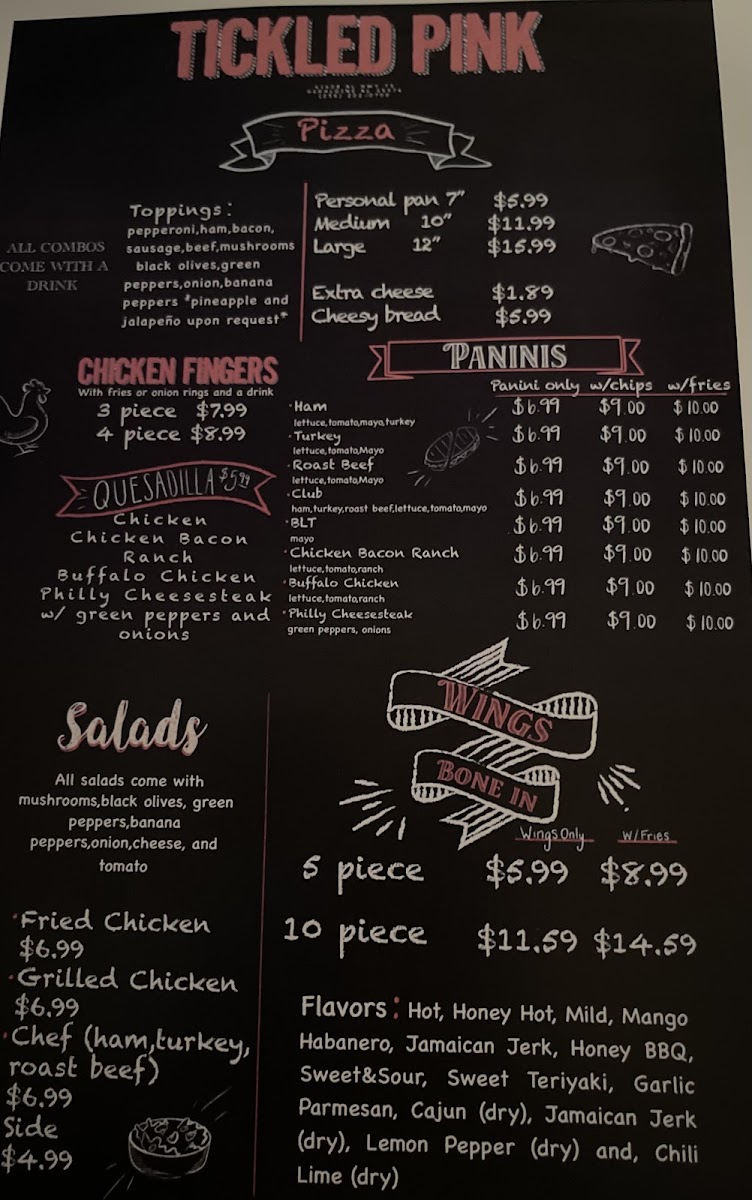 TICKLED PINK
Pizza
ALL COMBOS
COME WITH A
DRINK
Toppings:
pepperoni,ham,bacon,
sausage,beef,mushrooms
black olives,green
peppers,onion,banana
peppers *pineapple and
jalapeño upon request*
Personal pan 7" $5.99
Medium 10" $11.99
Large 12" $15.99
Extra cheese $1.89
Cheesy bread $5.99
CHICKEN FINGERS
With fries or onion rings and a drink
3 piece $7.99
4 piece $8.99
QUESADILLA $5.99
Chicken
Chicken Bacon
Ranch
Buffalo Chicken
Philly Cheesesteak
w/ green peppers and
onions
PANINIS
Panini only w/chips w/fries
·Ham $6.99 $9.00 $10.00
lettuce,tomato,mayo,turkey
·Turkey $6.99 $9.00 $10.00
lettuce,tomato,Mayo
·Roast Beef $6.99 $9.00 $10.00
lettuce,tomato,Mayo
·Club $6.99 $9.00 $10.00
ham,turkey,roast beef,lettuce,tomato,mayo
·BLT $6.99 $9.00 $10.00
mayo
·Chicken Bacon Ranch $6.99 $9.00 $10.00
lettuce,tomato,ranch
·Buffalo Chicken $6.99 $9.00 $10.00
lettuce,tomato,ranch
·Philly Cheesesteak $6.99 $9.00 $10.00
green peppers, onions
Salads
All salads come with
mushrooms,black olives, green
peppers,banana
peppers,onion,cheese, and
tomato
·Fried Chicken
$6.99
·Grilled Chicken
$6.99
·Chef (ham,turkey,
roast beef)
$6.99
Side
$4.99
WINGS
BONE IN
Wings Only W/Fries
5 piece $5.99 $8.99
10 piece $11.59 $14.59
Flavors: Hot, Honey Hot, Mild, Mango
Habanero, Jamaican Jerk, Honey BBQ,
Sweet&Sour, Sweet Teriyaki, Garlic
Parmesan, Cajun (dry), Jamaican Jerk
(dry), Lemon Pepper (dry) and, Chili
Lime (dry)